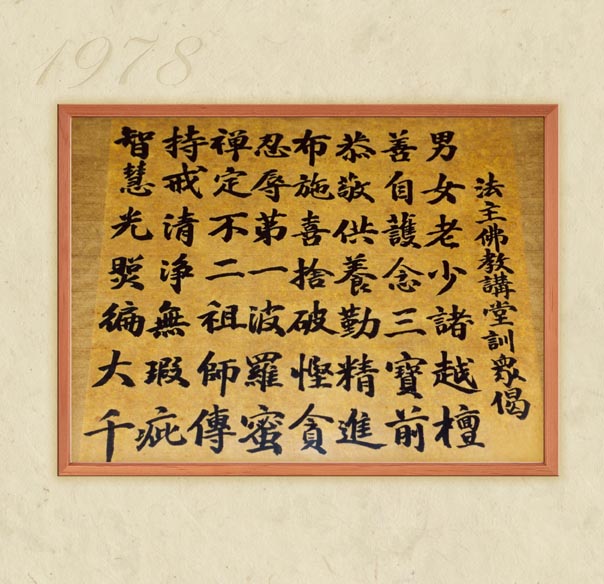 1978
法主佛教講堂訓眾偈
男女老少諸越檀
善自護念三寶前
恭敬供養勤精進
布施喜捨破慳貪
忍辱第一波羅蜜
禅定不二祖師傳
持戒清淨無瑕疵
智慧光徧大千